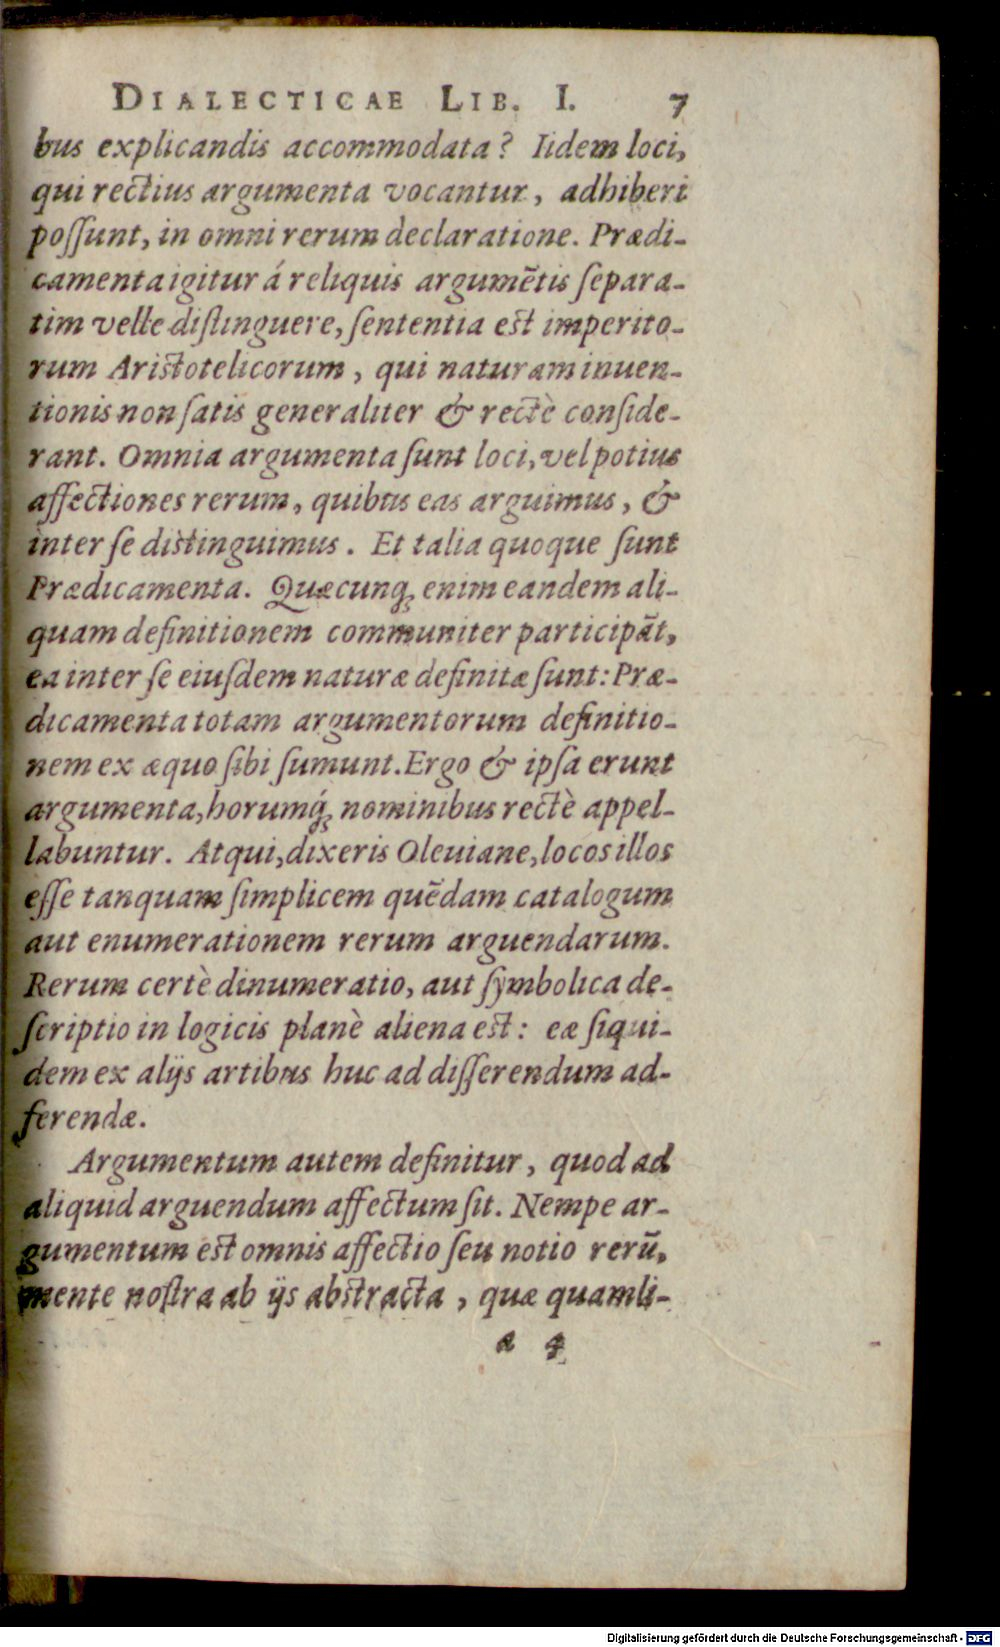 DIALECTICAE LIB. I. 7
bus explicandis accommodata? Iidem loci,
qui rectius argumenta vocantur, adhiberi
poſſunt, in omni rerum declaratione. Prædi-
camenta igitur á reliquis argumẽtis ſepara-
tim velle diſtinguere, ſententia est imperito-
rum Aristotelicorum, qui naturam inuen-
tionis non ſatis generaliter & rectè conſide-
rant. Omnia argumenta ſunt loci, vel potius
affectiones rerum, quibus eas arguimus, &
inter ſe distinguimus. Et talia quoque ſunt
Prædicamenta. Quæcunq; enim eandem ali-
quam definitionem communiter participãt,
ea inter ſe eiuſdem naturæ definitæ ſunt: Præ-
dicamenta totam argumentorum definitio-
nem ex æquo ſibi ſumunt. Ergo & ipſa erunt
argumenta, horumq́; nominibus rectè appel-
labuntur. Atqui, dixeris Oleuiane, locos illos
eſſe tanquam ſimplicem quẽdam catalogum
aut enumerationem rerum arguendarum.
Rerum certè dinumeratio, aut ſymbolica de-
ſcriptio in logicis planè aliena est: eæ ſiqui-
dem ex alijs artibus huc ad diſſerendum ad-
ferendæ.
Argumentum autem definitur, quod ad
aliquid arguendum affectum ſit. Nempe ar-
gumentum est omnis affectio ſeu notio rerũ,
mente noſtra ab ijs abstracta, quæ quamli-
a 4
Digitalisierung gefördert durch die Deutsche Forschungsgemeinschaft - DFG